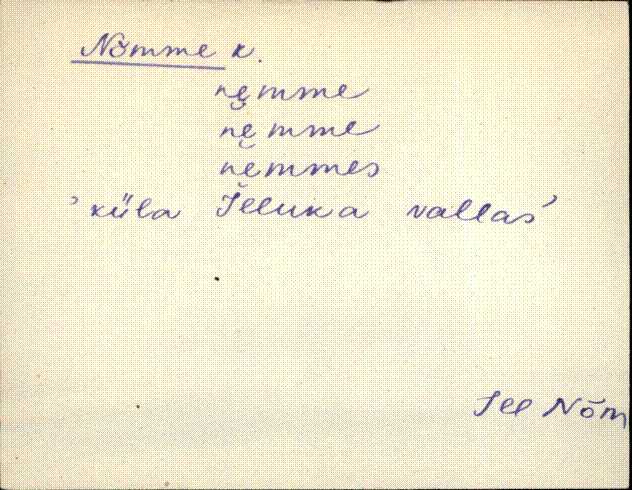 Nõmme k.
ne̮mme
ne̮mme
ne̮mmes
'küla Jeluka vallas'
Jel Nõm